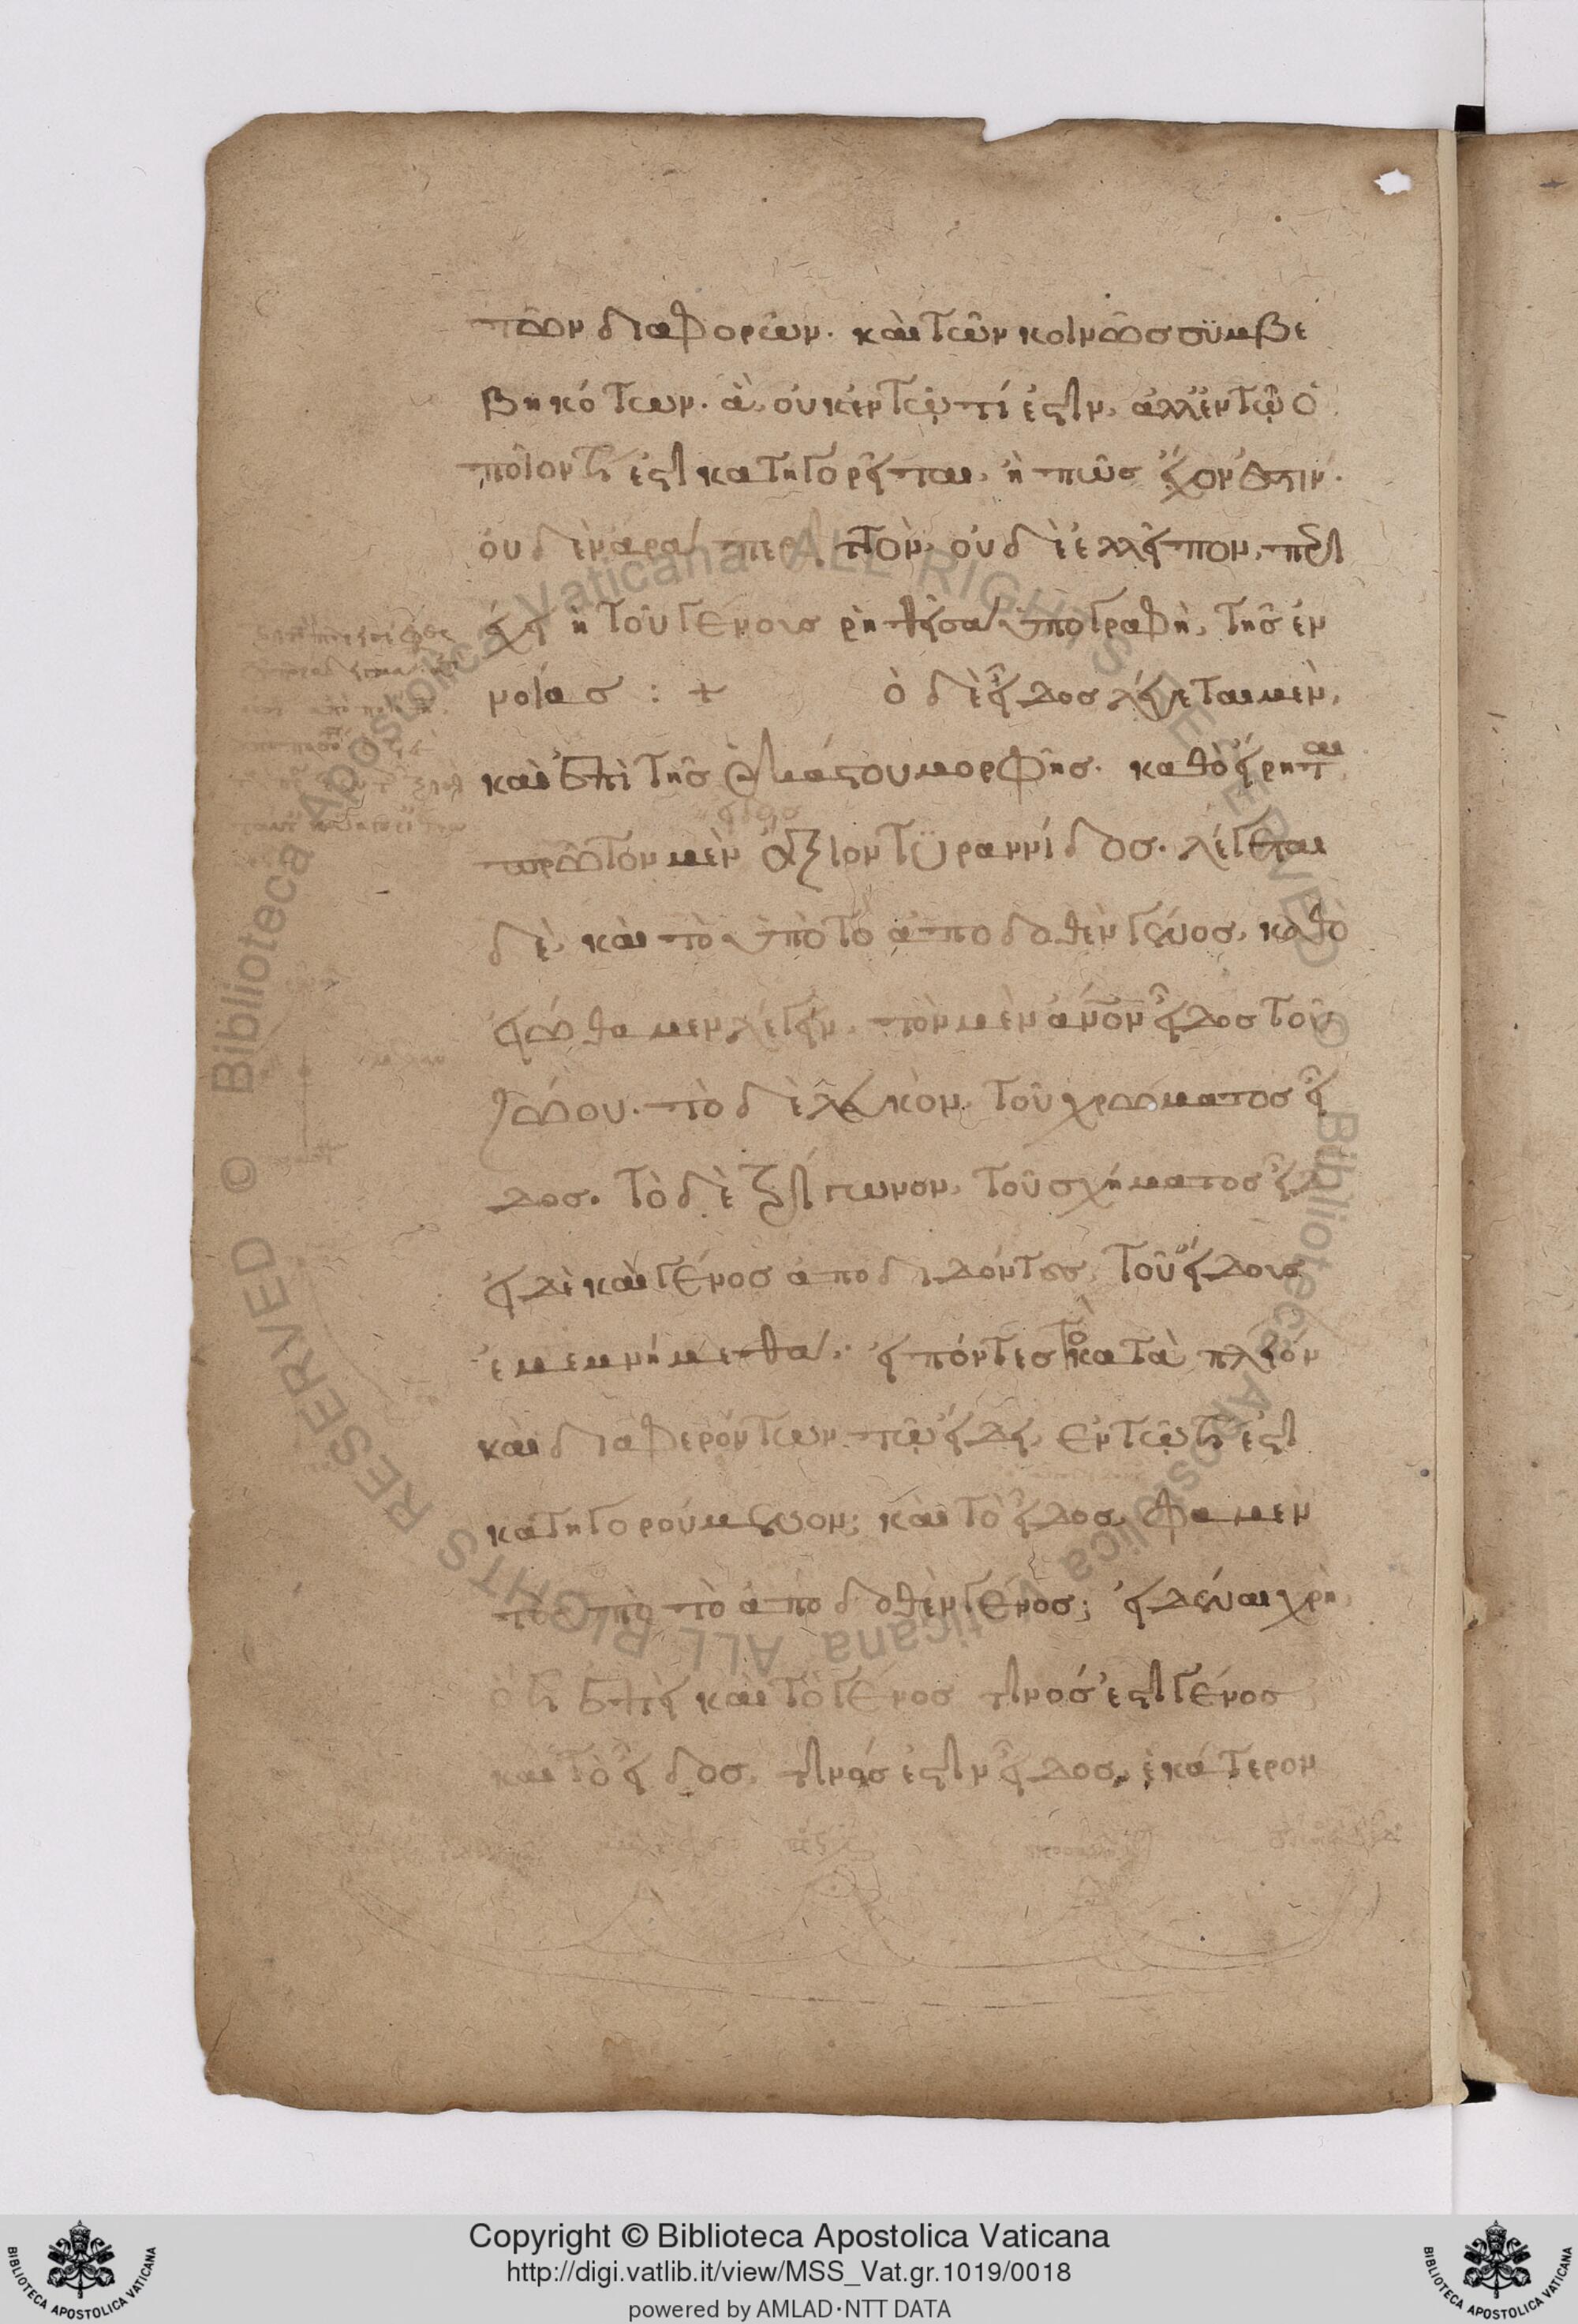 τῶν διαφορῶν. καὶ τῶν κοινῶς συμβε
βηκότων. ἃ, οὐκ ἐν τῷ τί ἐστιν, ἀλλ' ἐν τῷ ὁ
ποῖόν τι ἐστὶ κατηγορεῖται, ἢ πῶς ἔχον ἐστίν.
οὐδὲν ἄρα περιττὸν, οὐδὲ ἐλλεῖπον, περι
έχει ἡ τοῦ γένους ῥηθεῖσα ὑπογραφὴ, τῆς ἐν
νοίας : +
ὁ δὲ εἶδος λέγεται μὲν,
καὶ ἐπὶ τῆς ἑκάστου μορφῆς. καθὸ εἴρηται
πρῶτον μὲν εἶδος ἄξιον τυραννίδος. λέγεται
δὲ, καὶ τὸ ὑπὸ τὸ ἀποδοθὲν γένος, καθὸ
εἰώθαμεν λέγειν, τὸν μὲν ἄνον εἶδος τοῦ
ζώου. τὸ δὲ λευκὸν, τοῦ χρώματος εἶ
δος. τὸ δὲ τρίγωνον, τοῦ σχήματος εἶδ
εἰ δὲ καὶ γένος ἀποδιδόντες, τοῦ εἴδους
ἐμεμνήμεθα, εἰπόντες τὸ κατὰ πλειόν
καὶ διαφερόντων τῷ εἴδει, ἐν τῷ τί ἐστι
κατηγορούμενον; καὶ τὸ εἶδος φαμὲν
τὸ ὑπὸ τὸ ἀποδοθὲν γένος; εἰδέναι χρὴ,
ὅτι ἐπεὶ καὶ τὸ γένος τινός ἐστι γένος
καὶ τὸ εἶδος, τινός ἐστιν εἶδος, ἑκάτερον
Copyright © Biblioteca Apostolica Vaticana
http://digi.vatlib.it/view/MSS_Vat.gr.1019/0018
powered by AMLAD·NTT DATA